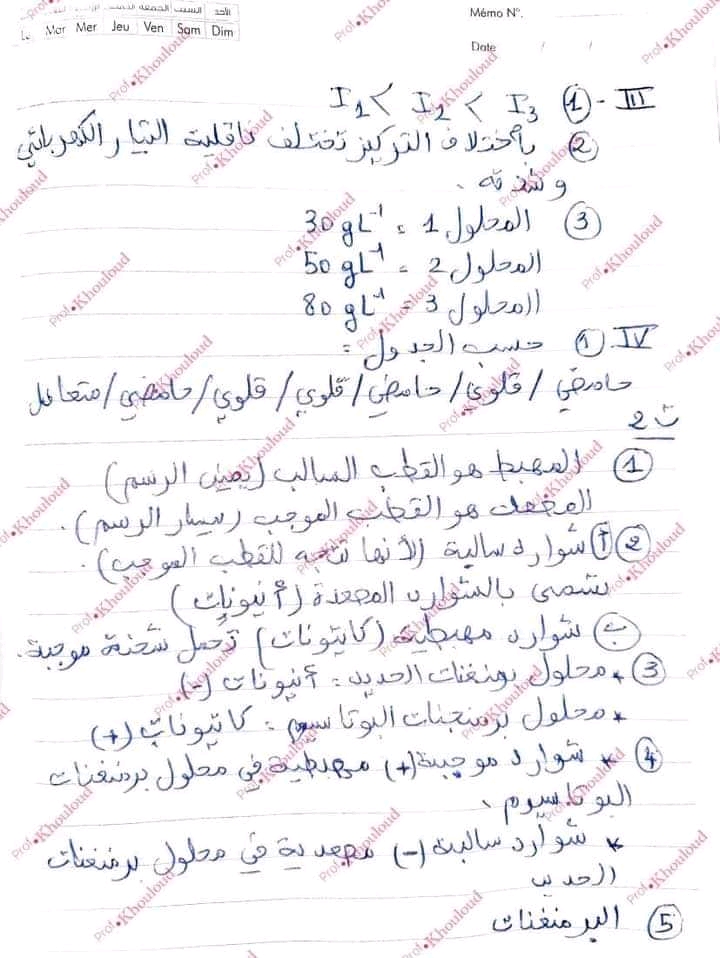 الجمعة السبت الأحد
Mar Mer Jeu Ven Sam Dim
Mémo N°.
Date / /
III - ① I₁ < I₂ < I₃
② بأختلاف التركيز تختلف ناقلية التيار الكهربائي
وشدته .
③ المحلول 1 = 30 gL⁻¹
المحلول 2 = 50 gL⁻¹
المحلول 3 = 80 gL⁻¹
IV. ① حسب الجدول =
حامضي / قلوي / حامضي / قلوي / قلوي / حامضي / متعادل
ت 2
① المهبط هو القطب السالب (يمين الرسم)
المصعد هو القطب الموجب (يسار الرسم) .
② أ شوارد سالبة (لأنها تتجه للقطب الموجب) .
تسمى بالشوارد المصعدة (أنيونات)
ب شوارد مهبطية (كاتيونات) تحمل شحنة موجبة .
③ * محلول برمنغنات الحديد = أنيونات (-)
* محلول برمنجنات البوتاسيوم = كاتيونات (+)
④ * شوارد موجبة (+) مهبطية في محلول برمنغنات
البوتاسيوم .
* شوارد سالبة (-) مصعدية في محلول برمنغنات
الحديد
⑤ البرمنغنات
Prof.Khouloud